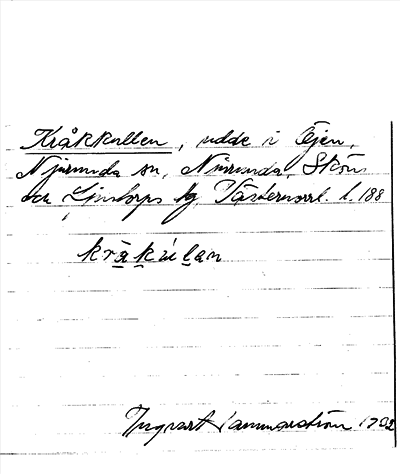 Kråkkullen, udde i Öjen,
Njurunda sn, Njurunda, Skön
och Ljustorps tg, Västernorrl. l. 188
kråkulan
Ingvart Hammarström